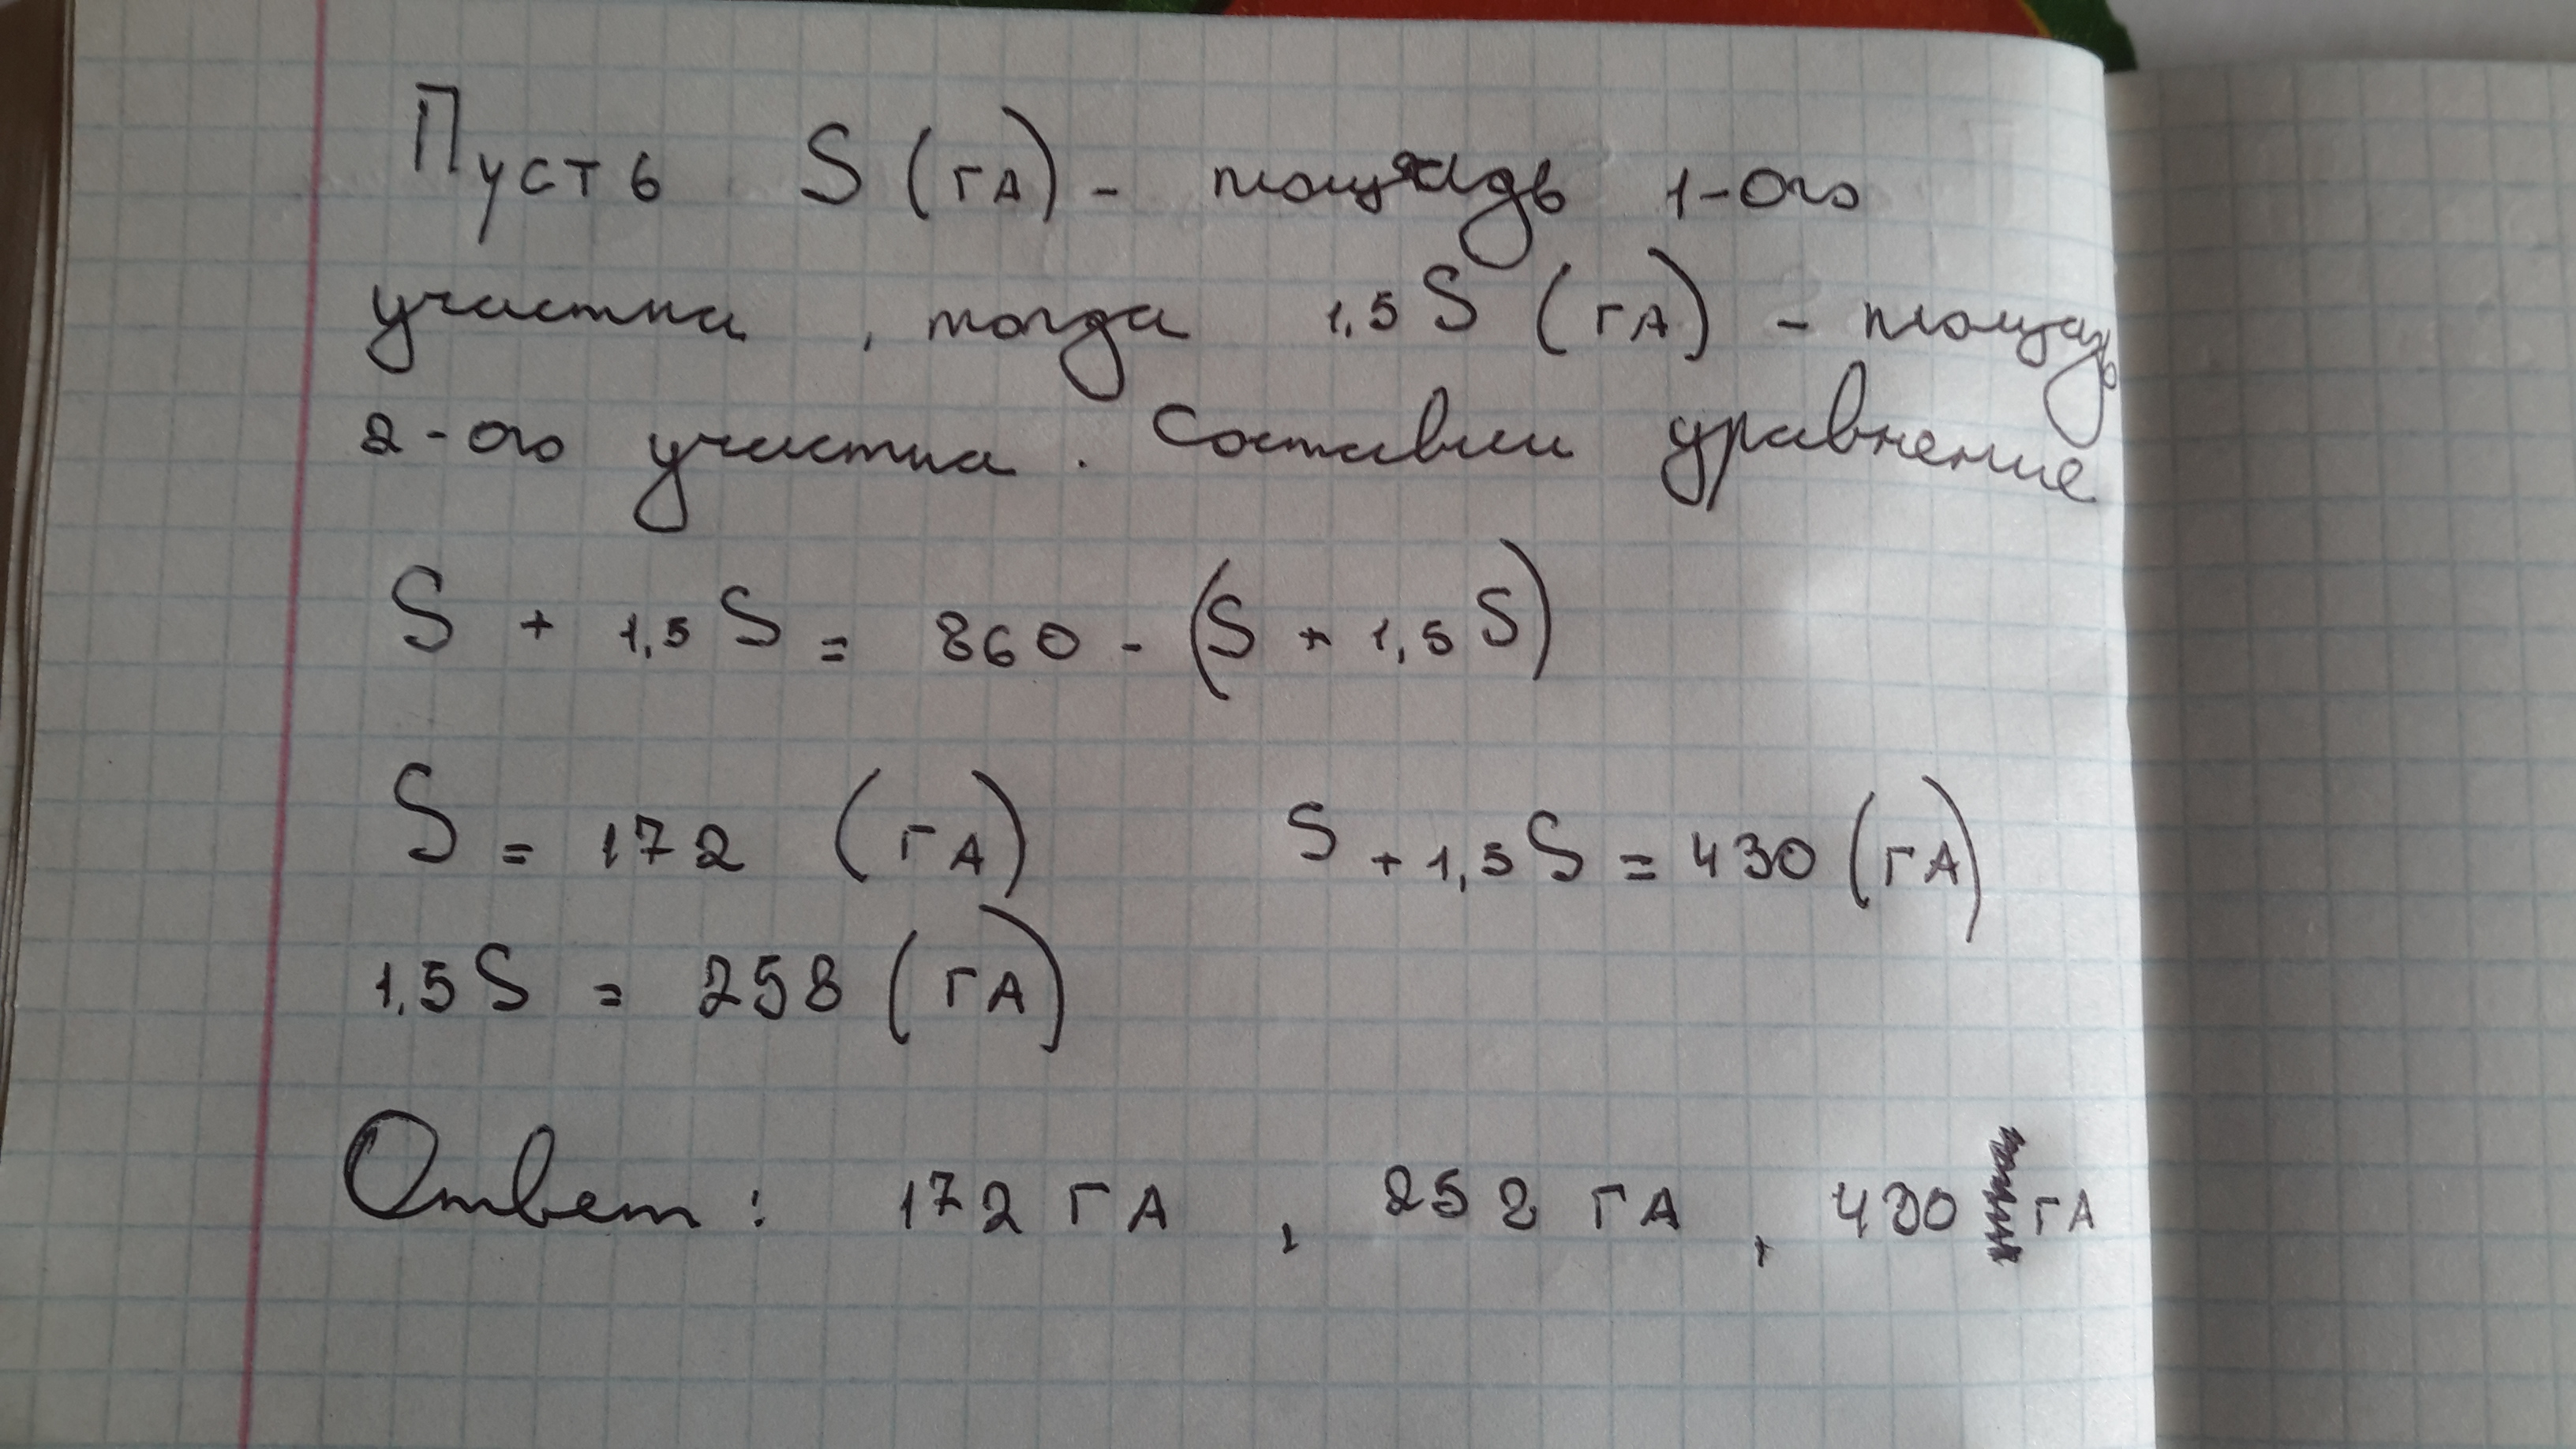 Пусть S (га) - площадь 1-ого
участка, тогда 1,5 S (га) - площадь
2-ого участка. Составим уравнение
S + 1,5 S = 860 - (S + 1,5 S)
S = 172 (га) S + 1,5 S = 430 (га)
1,5 S = 258 (га)
Ответ: 172 га, 258 га, 430 га